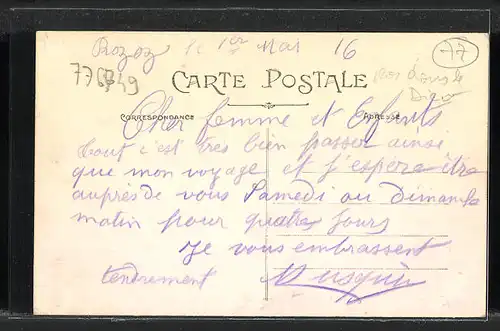 Rozoz le 1er Mai 16
77
776749
CARTE POSTALE
CORRESPONDANCE
ADRESSE
Cher femme et Enfants
tout c'est tres bien passer ainsi
que mon voyage et j'espere être
auprès de vous Samedi ou dimanche
matin pour quatre jours
Je vous embrassent
tendrement